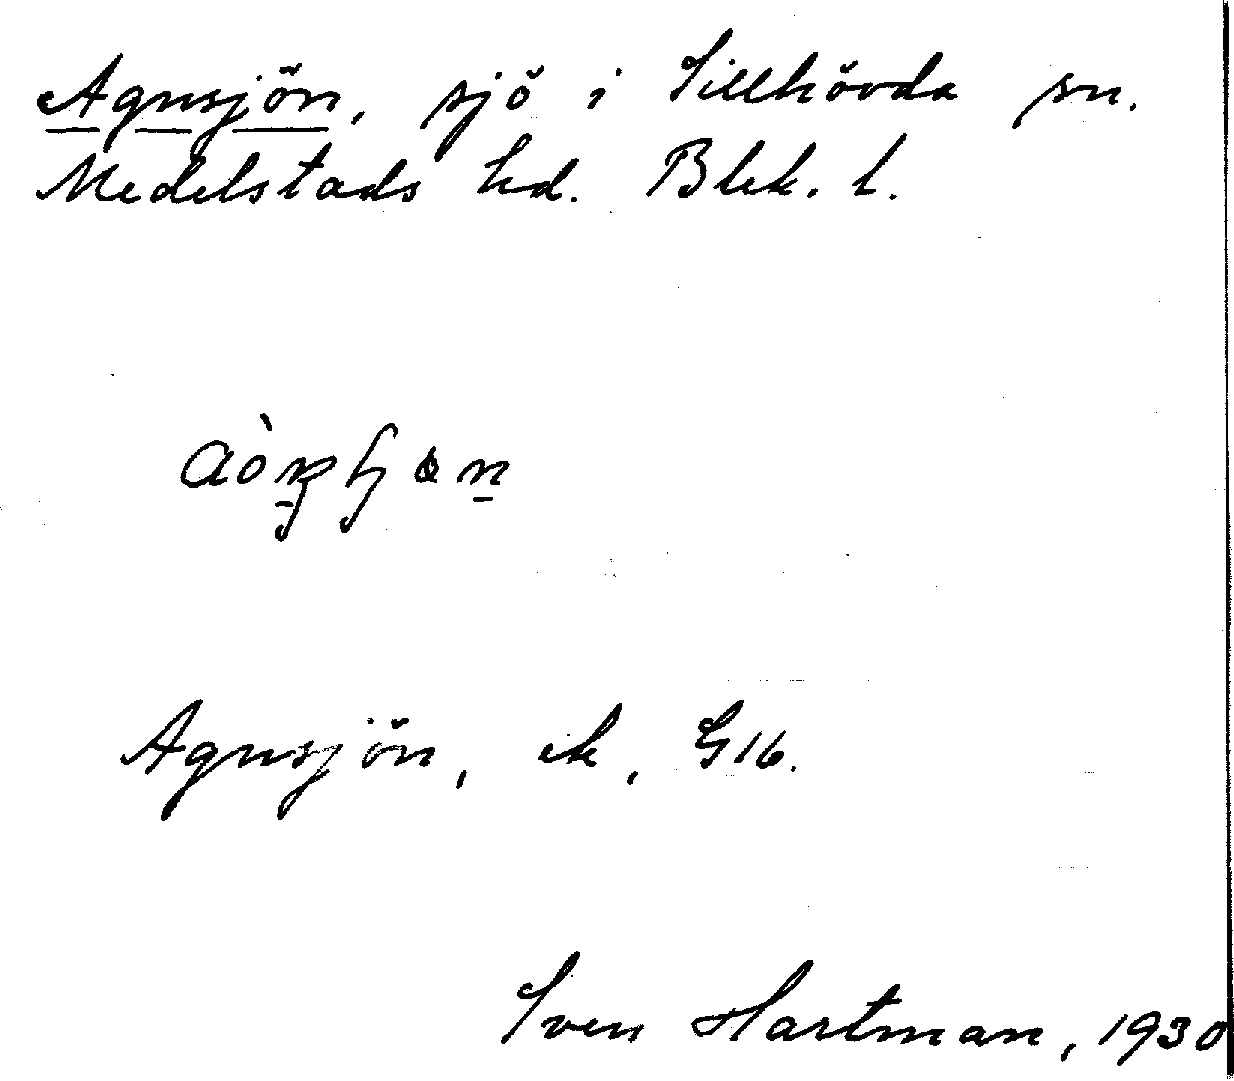 Agnsjön, sjö i Sillhövda sn.
Medelstads hd. Blek. l.
Agnsjön, ek, G16.
Sven Hartman, 1930